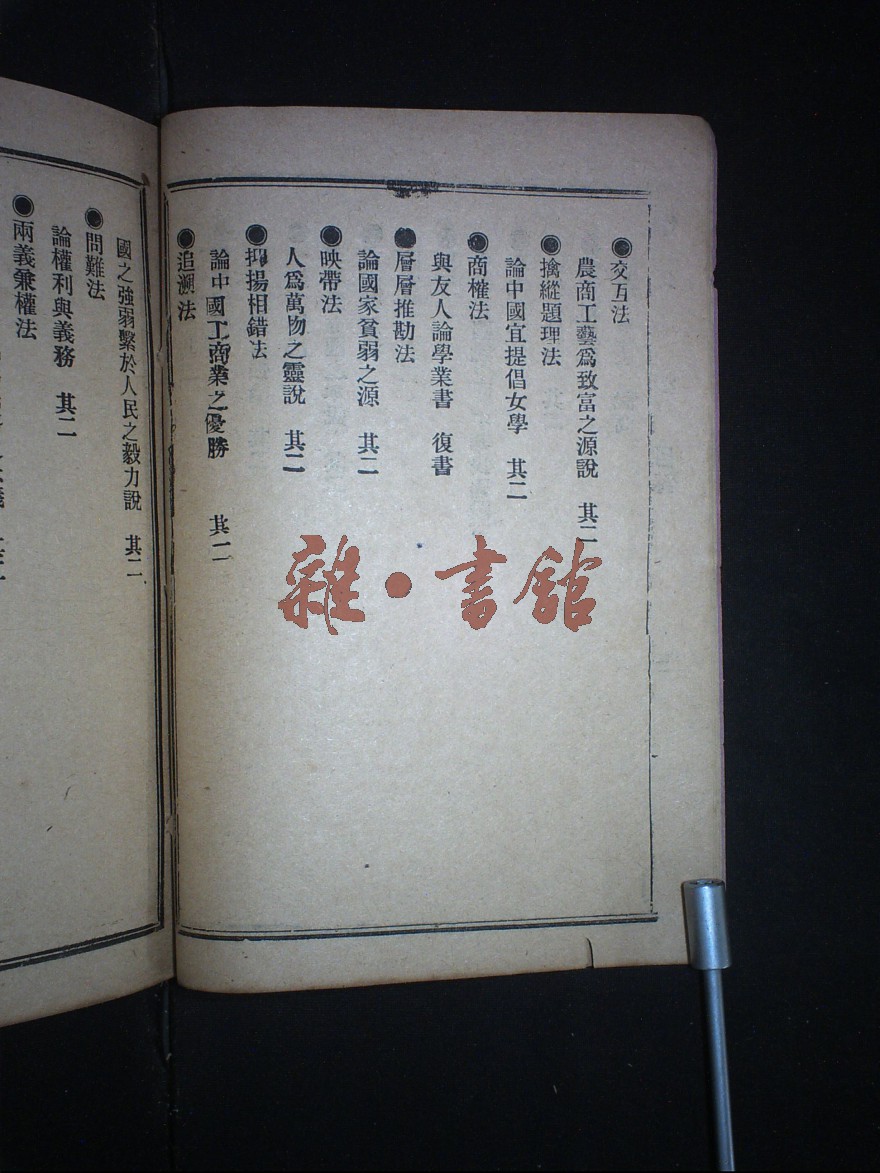 ●交互法
農商工藝爲致富之源說　其二
●擒縱題理法
論中國宜提倡女學　其二
●商權法
與友人論學業書　復書
●層層推勘法
論國家貧弱之源　其二
●映帶法
人爲萬物之靈說　其二
●抑揚相錯法
論中國工商業之優勝　其二
●追溯法
國之強弱繫於人民之毅力說　其二
●問難法
論權利與義務　其二
●兩義兼權法
雜·書館